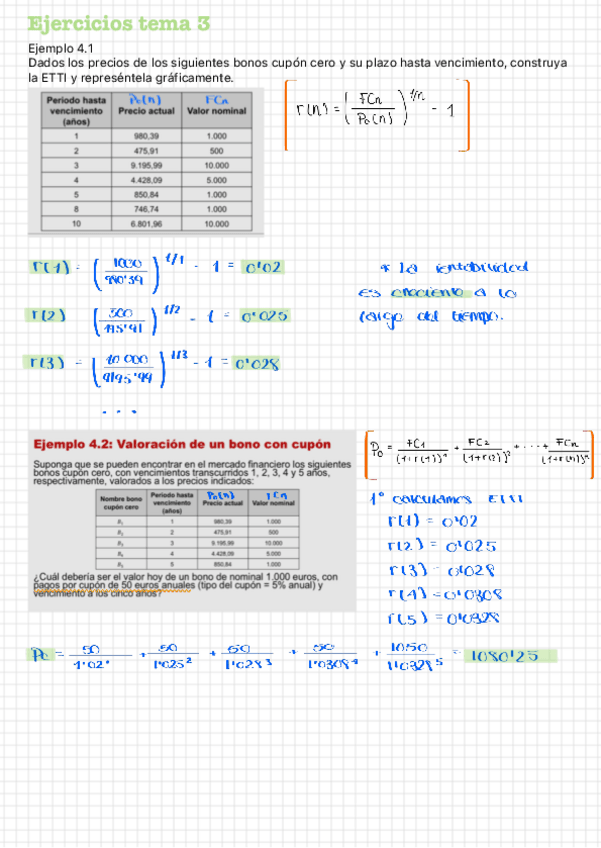 Ejercicios tema 3
Ejemplo 4.1
Dados los precios de los siguientes bonos cupón cero y su plazo hasta vencimiento, construya
la ETTI y represéntela gráficamente.
Periodo hasta vencimiento (años) P₀(n) Precio actual FCn Valor nominal
1 980,39 1.000
2 475,91 500
3 9.195,99 10.000
4 4.428,09 5.000
5 850,84 1.000
8 746,74 1.000
10 6.801,96 10.000
r(n) = (FCn / P₀(n))^1/n - 1
r(1) = (1000 / 980'39)^1/1 - 1 = 0'02
r(2) (500 / 475'91)^1/2 - 1 = 0'025
r(3) = (10 000 / 9195'99)^1/3 - 1 = 0'028
...
* la rentabilidad
es creciente a lo
largo del tiempo.
Ejemplo 4.2: Valoración de un bono con cupón
Suponga que se pueden encontrar en el mercado financiero los siguientes
bonos cupón cero, con vencimientos transcurridos 1, 2, 3, 4 y 5 años,
respectivamente, valorados a los precios indicados:
Nombre bono cupón cero Periodo hasta vencimiento (años) P₀(n) Precio actual FCn Valor nominal
B₁ 1 980,39 1.000
B₂ 2 475,91 500
B₃ 3 9.195,99 10.000
B₄ 4 4.428,09 5.000
B₅ 5 850,84 1.000
¿Cuál debería ser el valor hoy de un bono de nominal 1.000 euros, con
pagos por cupón de 50 euros anuales (tipo del cupón = 5% anual) y
vencimiento a los cinco años?
P₀ = FC1 / (1+r(1))¹ + FC2 / (1+r(2))² + ... + FCn / (1+r(n))ⁿ
1° calculamos ETTI
r(1) = 0'02
r(2) = 0'025
r(3) = 0'028
r(4) = 0'0308
r(5) = 0'0328
P₀ = 50 / 1'02¹ + 50 / 1'025² + 50 / 1'028³ + 50 / 1'0308⁴ + 1050 / 1'0328⁵ = 1080'25